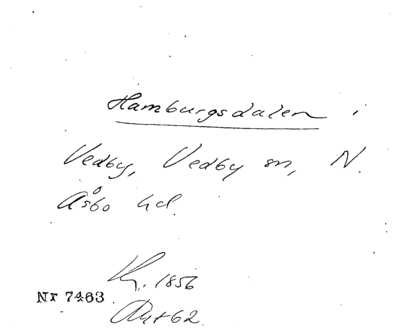 Hamburgsdalen i
Vedby, Vedby sn, N.
Åsbo hd.
1856
Nr 7463